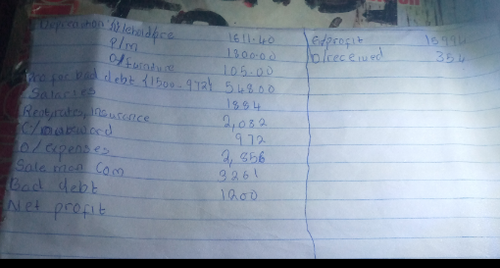 Depreciation leasehold pcs 1611.40
P/m 1300.00
O/Furniture 105.00
for bad debt (1500-972) 54800
Salaries 1884
Rent, rates, insurance 2,082
C/ 972
O/expenses 2,356
Sales men Com 3261
Bad debt 1200
Net profit
G/profit
D/received 354